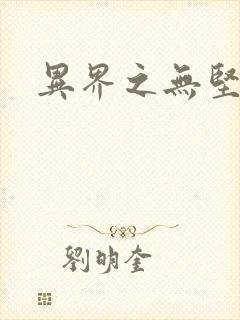 異界之無堅
劉明奎